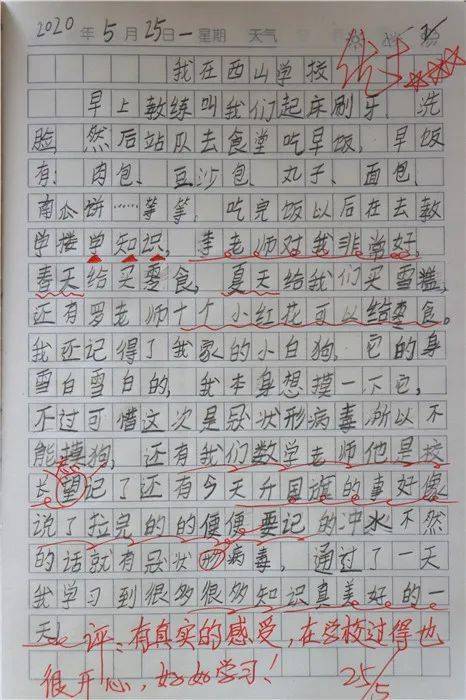 2020年5月25日 一 星期 天气
优+
我在西山学校
早上教练叫我们起床刷牙、洗
脸,然后站队去食堂吃早饭,早饭
有:肉包、豆沙包、丸子、面包、
南瓜饼……等等,吃完饭以后在去教
学楼学知识,李老师对我非常好,
春天给买零食,夏天给我们买雪糕,
还有罗老师十个小红花可以给零食。
我还记得了我家的小白狗,它的身
雪白雪白的,我本身想摸一下它,
不过可惜这次是冠状形病毒,所以不
能摸狗,还有我们数学老师他是校
长望记了还有今天升国旗的事好像
忘
说了拉完的的便便要记的冲水不然
的话就有冠状形病毒,通过了一天
我学习到很多很多知识真美好的一
天!
评:有真实的感受,在学校过得也
很开心,好好学习!
25/5